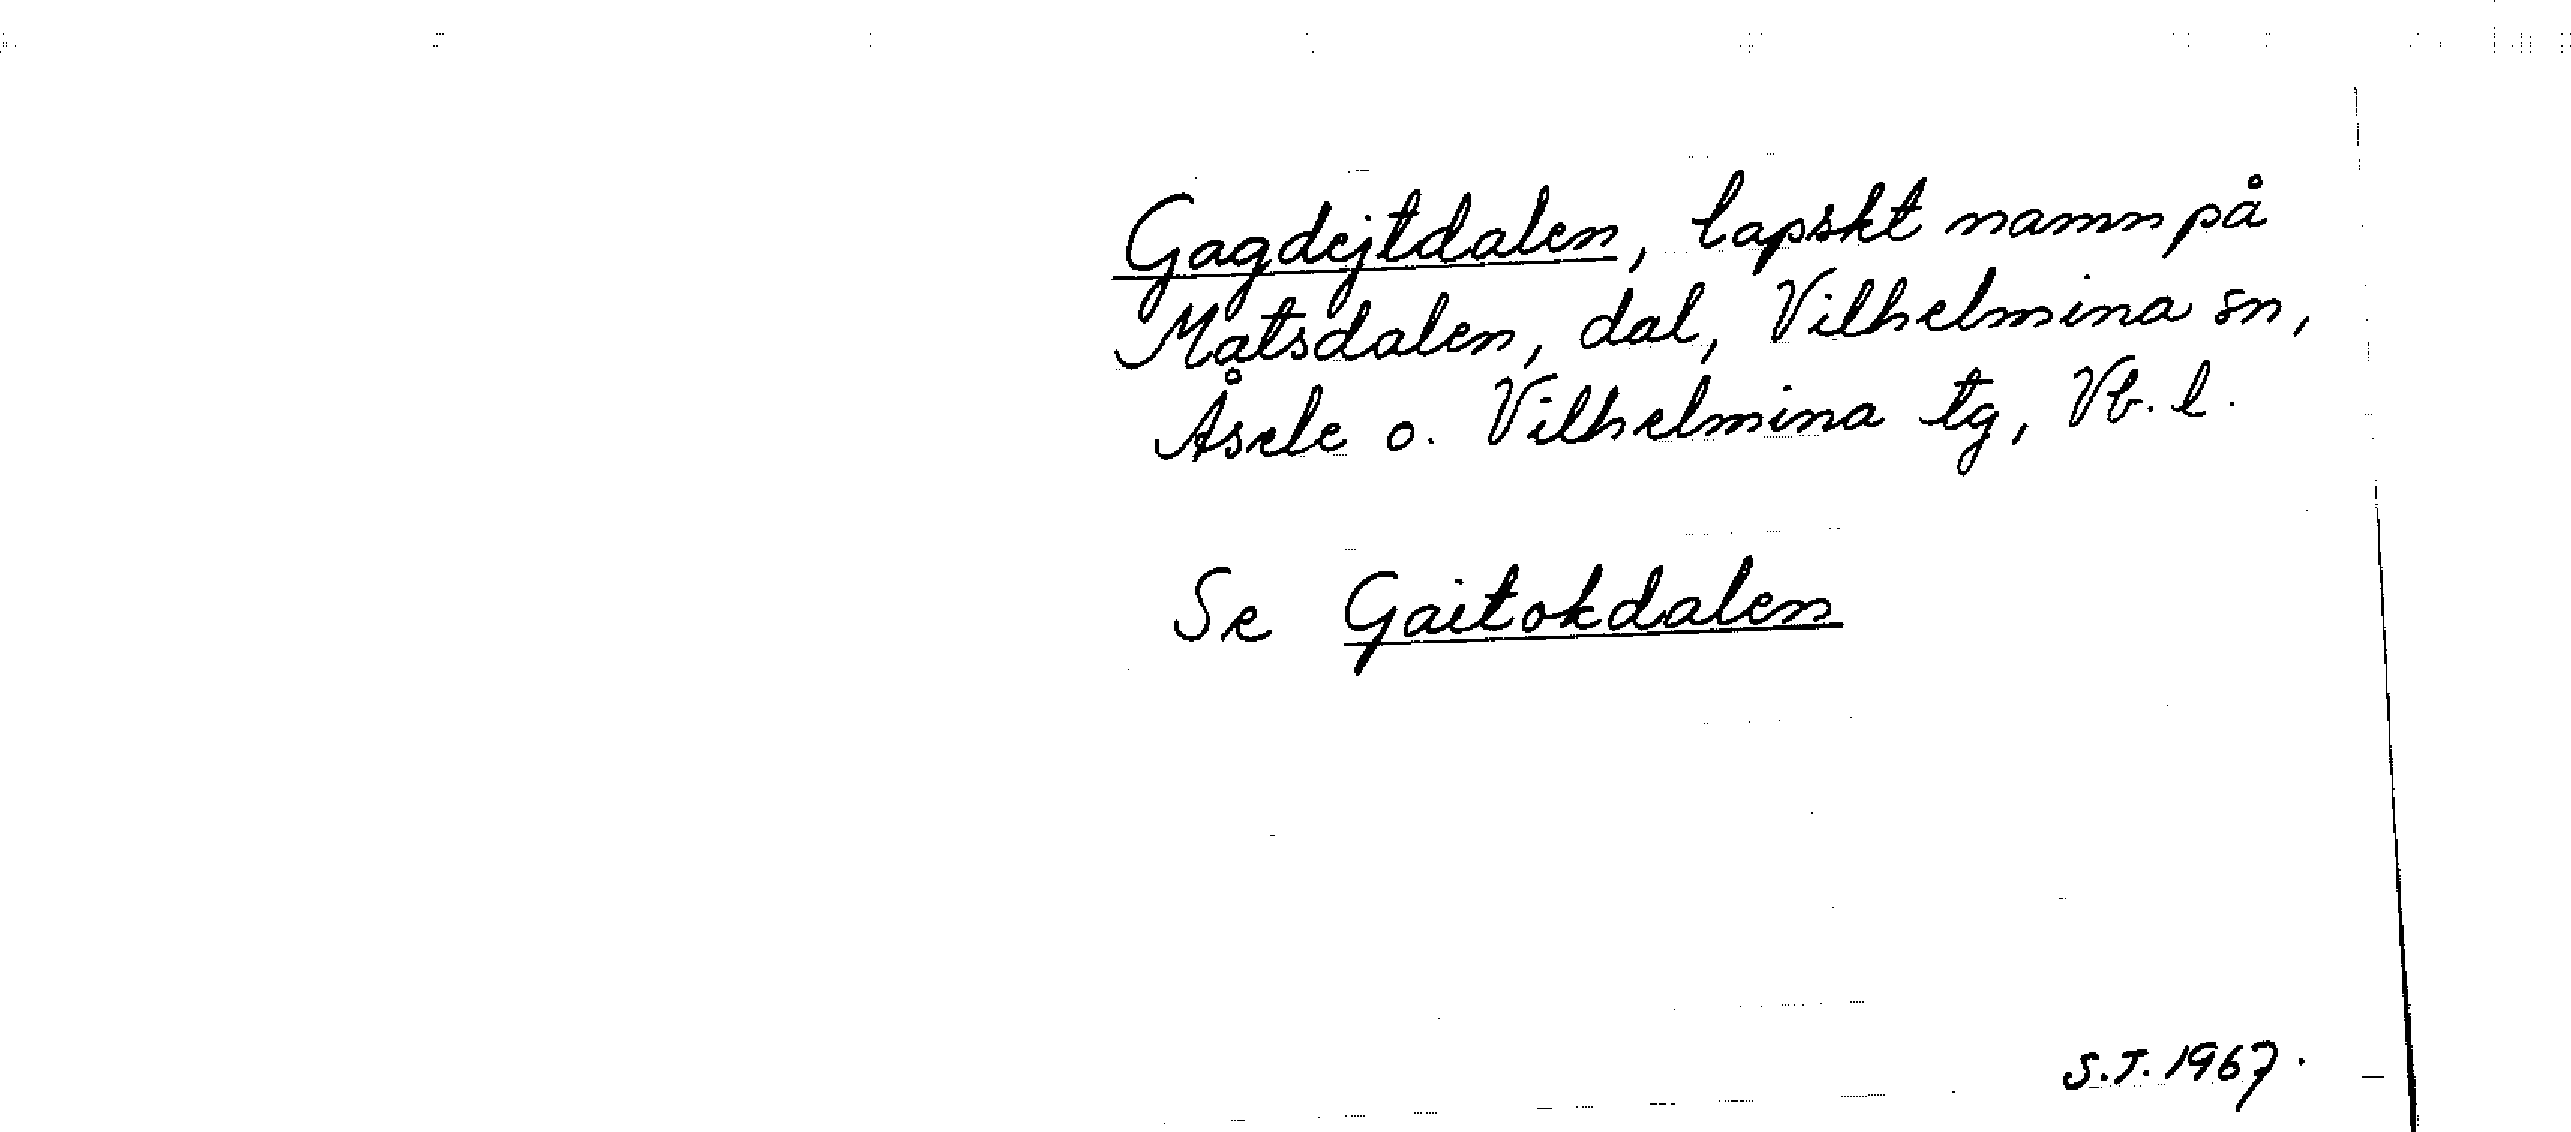 Gagdejtdalen, lapskt namn på
Matsdalen, dal, Vilhelmina sn,
Åsele o. Vilhelmina tg, Vb. l.
Se Gaitokdalen
S.T. 1967.